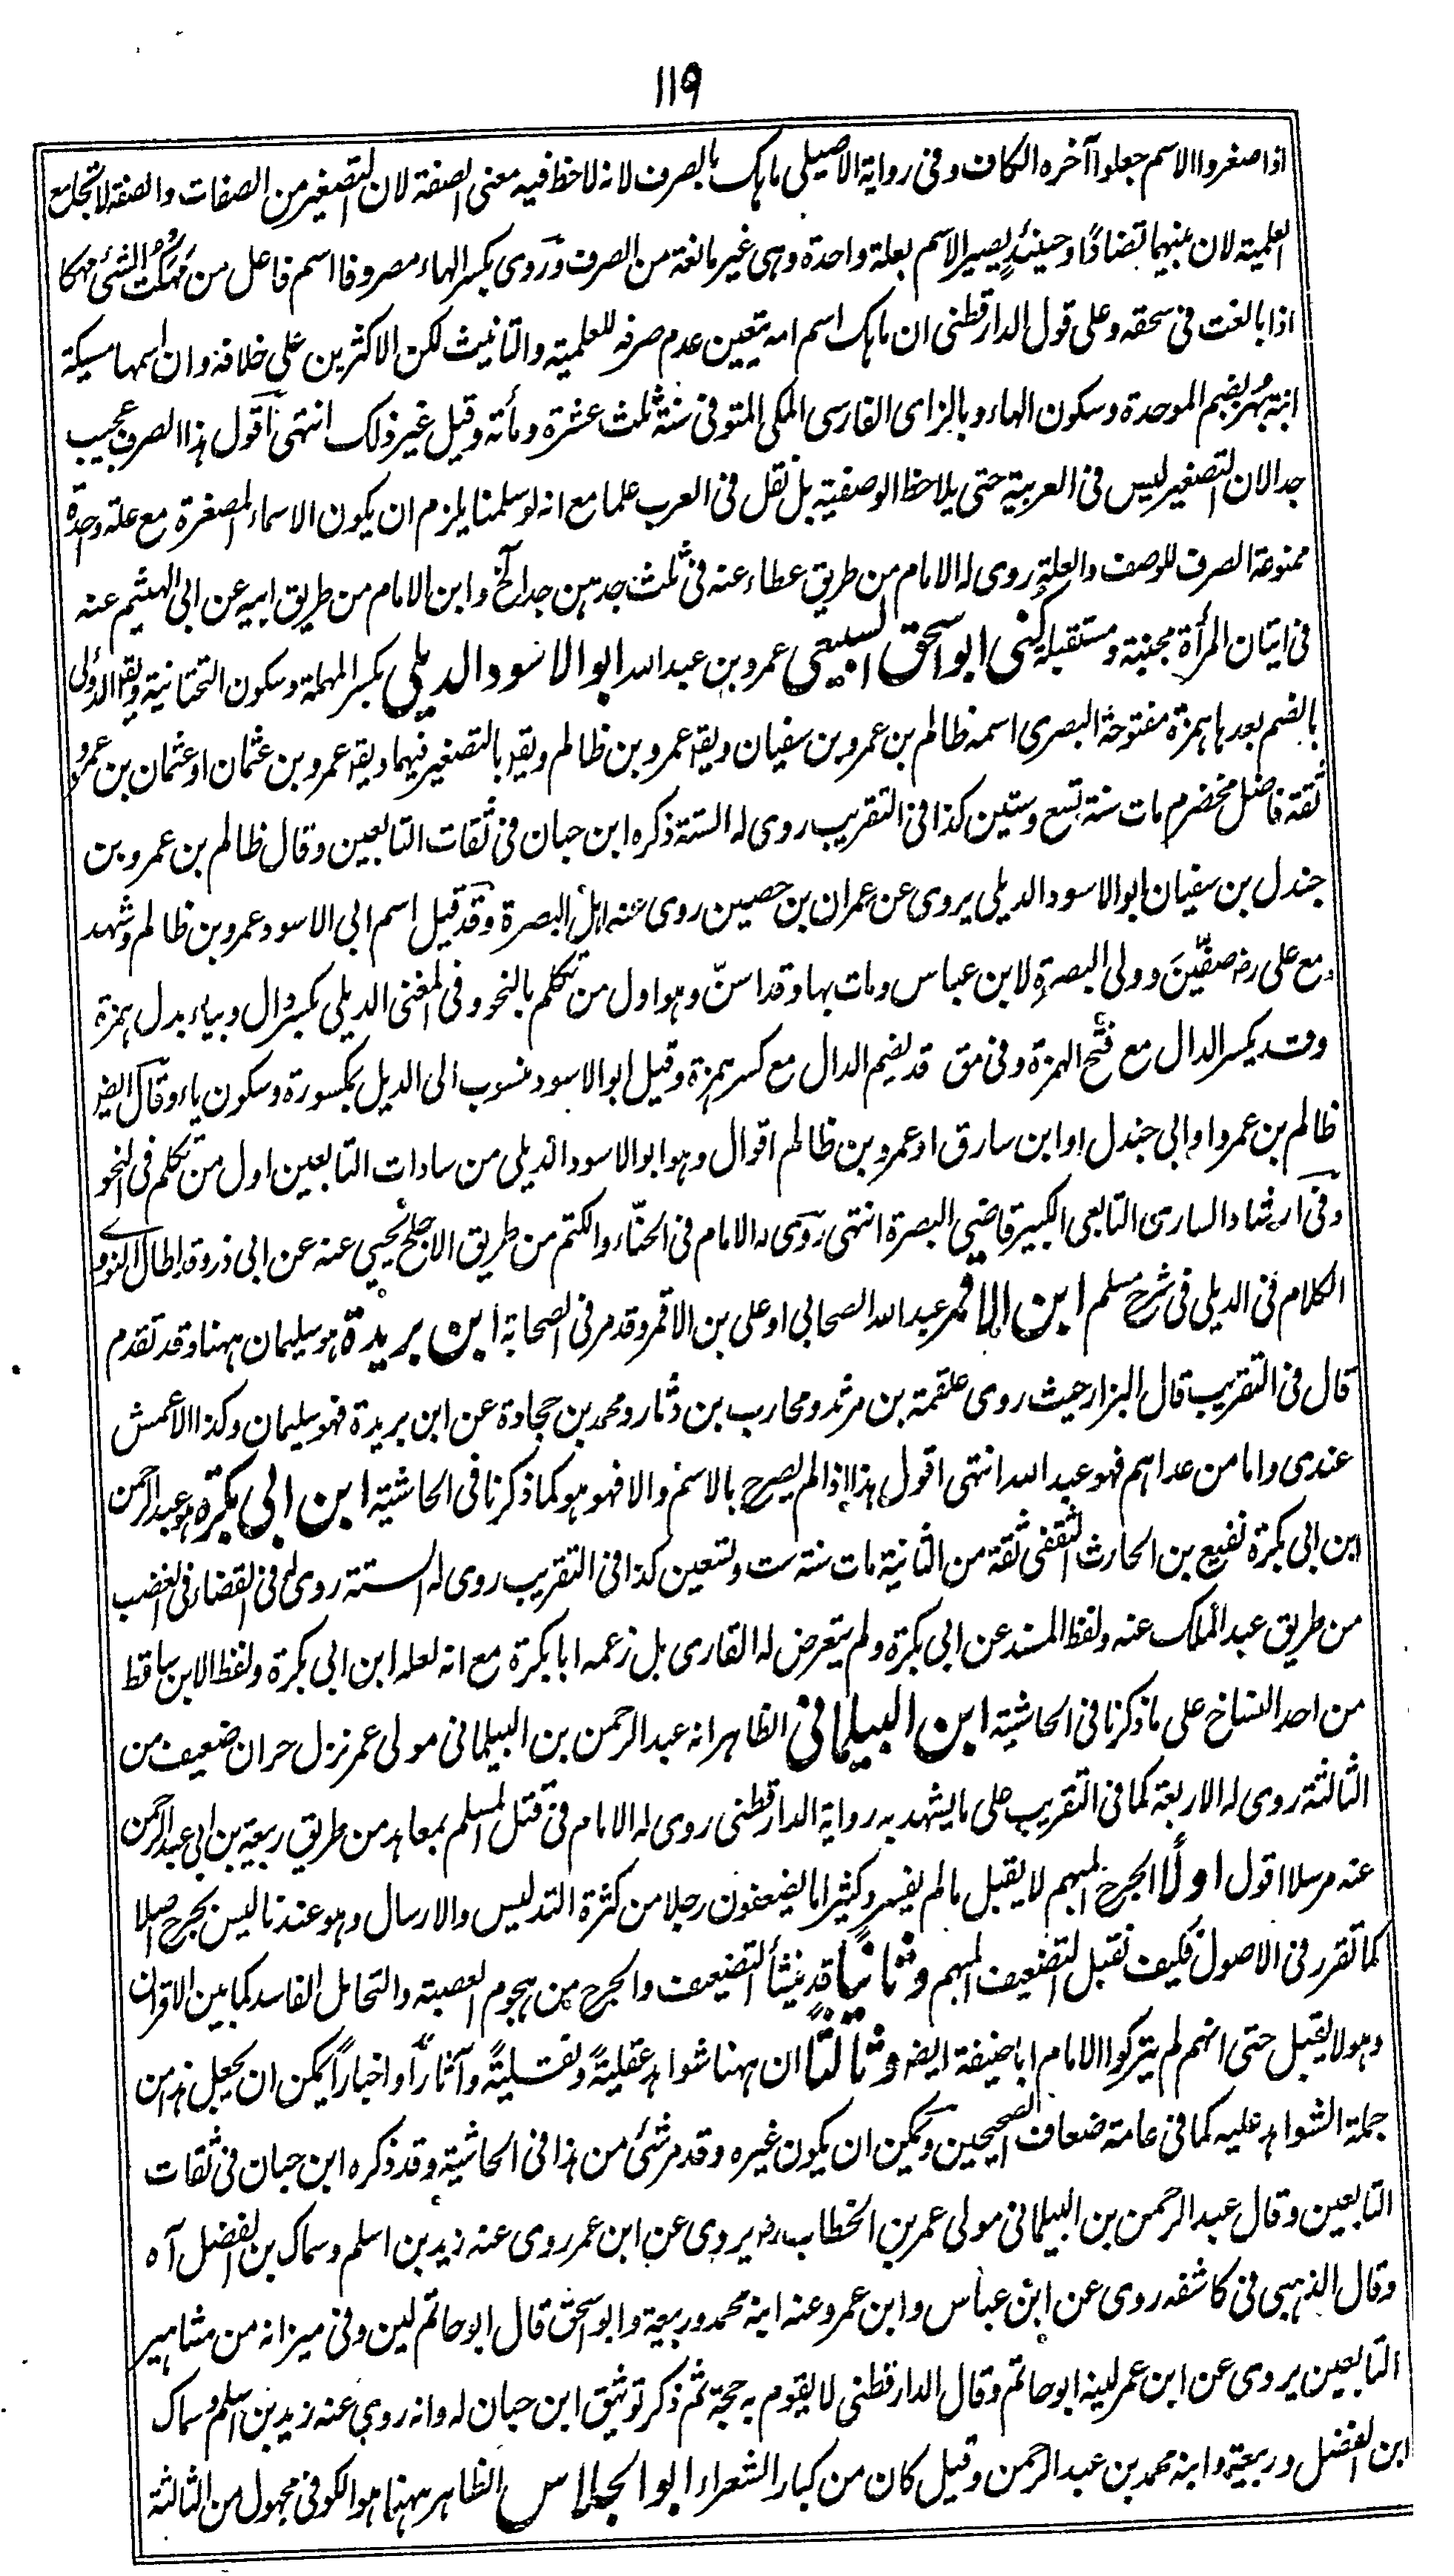 ١١٩
اذا صغروا الاسم جعلوا آخره الكاف وفى رواية الاصيلى ماهك بالصرف لانه لاحظ فيه معنى الصفة لان التصغير من الصفات والصفة لا تجامع
العلمية لان بينهما تضادًا وحينئذٍ يصير الاسم بعلة واحدة وهى غير مانعة من الصرف وروى بكسر الهاء مصروفا اسم فاعل من مهكت الشئ مهكا
اذا بالغت فى سحقه وعلى قول الدارقطنى ان ماهك اسم امه يتعين عدم صرفه للعلمية والتانيث لكن الاكثرين على خلافه وان اسمها مسيكة
ابنة بهز بضم الموحدة وسكون الهاء وبالزاى الفارسى المكى المتوفى سنة ثلث عشرة ومأته وقيل غير ذلك انتهى اقول هذا الصرف عجيب
جدا لان التصغير ليس فى العربية حتى يلاحظ الوصفية بل نقل فى العرب علما مع انه لو سلمنا يلزم ان يكون الاسماء المصغرة مع علة واحدة
ممنوعة الصرف للوصف والعلة روى له الامام من طريق عطاء عنه فى ثلث جدهن جد الخ وابن الامام من طريق ابيه عن ابى الهيثم عنه
فى اتيان المرأة مجنبة ومستقبلة كنى ابو اسحق السبيعى عمرو بن عبد الله ابو الاسود الديلى بكسر المهملة وسكون التحتانية ويقه الدؤلى
بالضم بعدها همزة مفتوحة البصرى اسمه ظالم بن عمرو بن سفيان ويقه عمرو بن ظالم ويقه بالتصغير فيهما ويقه عمرو بن عثمان او عثمان بن عمرو
ثقة فاضل مخضرم مات سنة تسع وستين كذا فى التقريب روى له الستة ذكره ابن حبان فى ثقات التابعين وقال ظالم بن عمرو بن
جندل بن سفيان ابو الاسود الديلى يروى عن عمران بن حصين روى عنه اهل البصرة وقد قيل اسم ابى الاسود عمرو بن ظالم وشهد
مع على رض صفّينَ وولى البصرة لابن عباس ومات بها وقد اسنّ وهو اول من تكلم بالنحو وفى المغنى الديلى بكسر دال وبياء بدل همزة
وقد يكسر الدال مع فتح الهمزة وفى مق قد يضم الدال مع كسر همزة وقيل ابو الاسود منسوب الى الديل بمكسورة وسكون ياء وقال ايض
ظالم بن عمرو او ابى جندل او ابن سارق او عمرو بن ظالم اقوال وهو ابو الاسود الديلى من سادات التابعين اول من تكلم فى النحو
وفى ارشاد السارى التابعى الكبير قاضى البصرة انتهى روى له الامام فى الحنّاء والكتم من طريق الاجلح يحيى عنه عن ابى ذر وقد اطال النووى
الكلام فى الديلى فى شرح مسلم ابن الاقمر عبد الله الصحابى او على بن الاقمر وقد مر فى الصحابة ابن بريدة هو سليمان ههنا وقد تقدم
قال فى التقريب قال البزار حيث روى علقمة بن مرثد ومحارب بن دثار ومحمد بن جحادة عن ابن بريدة فهو سليمان وكذا الاعمش
عندى واما من عداهم فهو عبد الله انتهى اقول هذا اذا لم يصرح بالاسم والا فهو هو كما ذكرنا فى الحاشية ابن ابى بكرة هو عبد الرحمن
ابن ابى بكرة نفيع بن الحارث الثقفى ثقة من الثانية مات سنة ست وتسعين كذا فى التقريب روى له الستة روى له فى القضاء فى الغضب
من طريق عبد الملك عنه ولفظ المسند عن ابى بكرة ولم يتعرض له القارى بل زعمه ابا بكرة مع انه لعله ابن ابى بكرة ولفظ الابن ساقط
من احد النساخ على ما ذكرنا فى الحاشية ابن البيلمانى الظاهر انه عبد الرحمن بن البيلمانى مولى عمر نزل حران ضعيف من
الثالثة روى له الاربعة كما فى التقريب على ما يشهد به رواية الدارقطنى روى له الامام فى قتل المسلم بمعاهد من طريق ربيعة بن ابى عبد الرحمن
عنه مرسلا اقول اولًا الجرح المبهم لا يقبل مالم يفسر وكثيرا ما يضعفون رجلا من كثرة التدليس والارسال وهو عندنا ليس بجرح اصلا
كما تقرر فى الاصول فكيف نقبل التضعيف المبهم وثانيًا قد ينشأ التضعيف والجرح من هجوم العصبة والتحامل الفاسد كما بين الاقران
وهو لا يقبل حتى انهم لم يتركوا الامام ابا حنيفة ايض وثالثًا ان ههنا شواهد عقليةً ونقليةً وآثارًا واخبارًا يمكن ان يجعل هذا من
جملة الشواهد عليه كما فى عامة ضعاف الصحيحين ويمكن ان يكون غيره وقد مر شئ من هذا فى الحاشية وقد ذكره ابن حبان فى ثقات
التابعين وقال عبد الرحمن بن البيلمانى مولى عمر بن الخطاب رض يروى عن ابن عمر روى عنه زيد بن اسلم وسماك بن الفضل آه
وقال الذهبى فى كاشفه روى عن ابن عباس وابن عمر وعنه ابنه محمد وربيعة وابو اسحق قال ابو حاتم لين وفى ميزانه من مشاهير
التابعين يروى عن ابن عمر لينه ابو حاتم وقال الدارقطنى لا يقوم به حجة ثم ذكر توثيق ابن حبان له وانه روى عنه زيد بن اسلم وسماك
ابن الفضل وربيعة وابنه محمد بن عبد الرحمن وقيل كان من كبار الشعراء ابو الجلاس الظاهر ههنا هو الكوفى مجهول من الثالثة